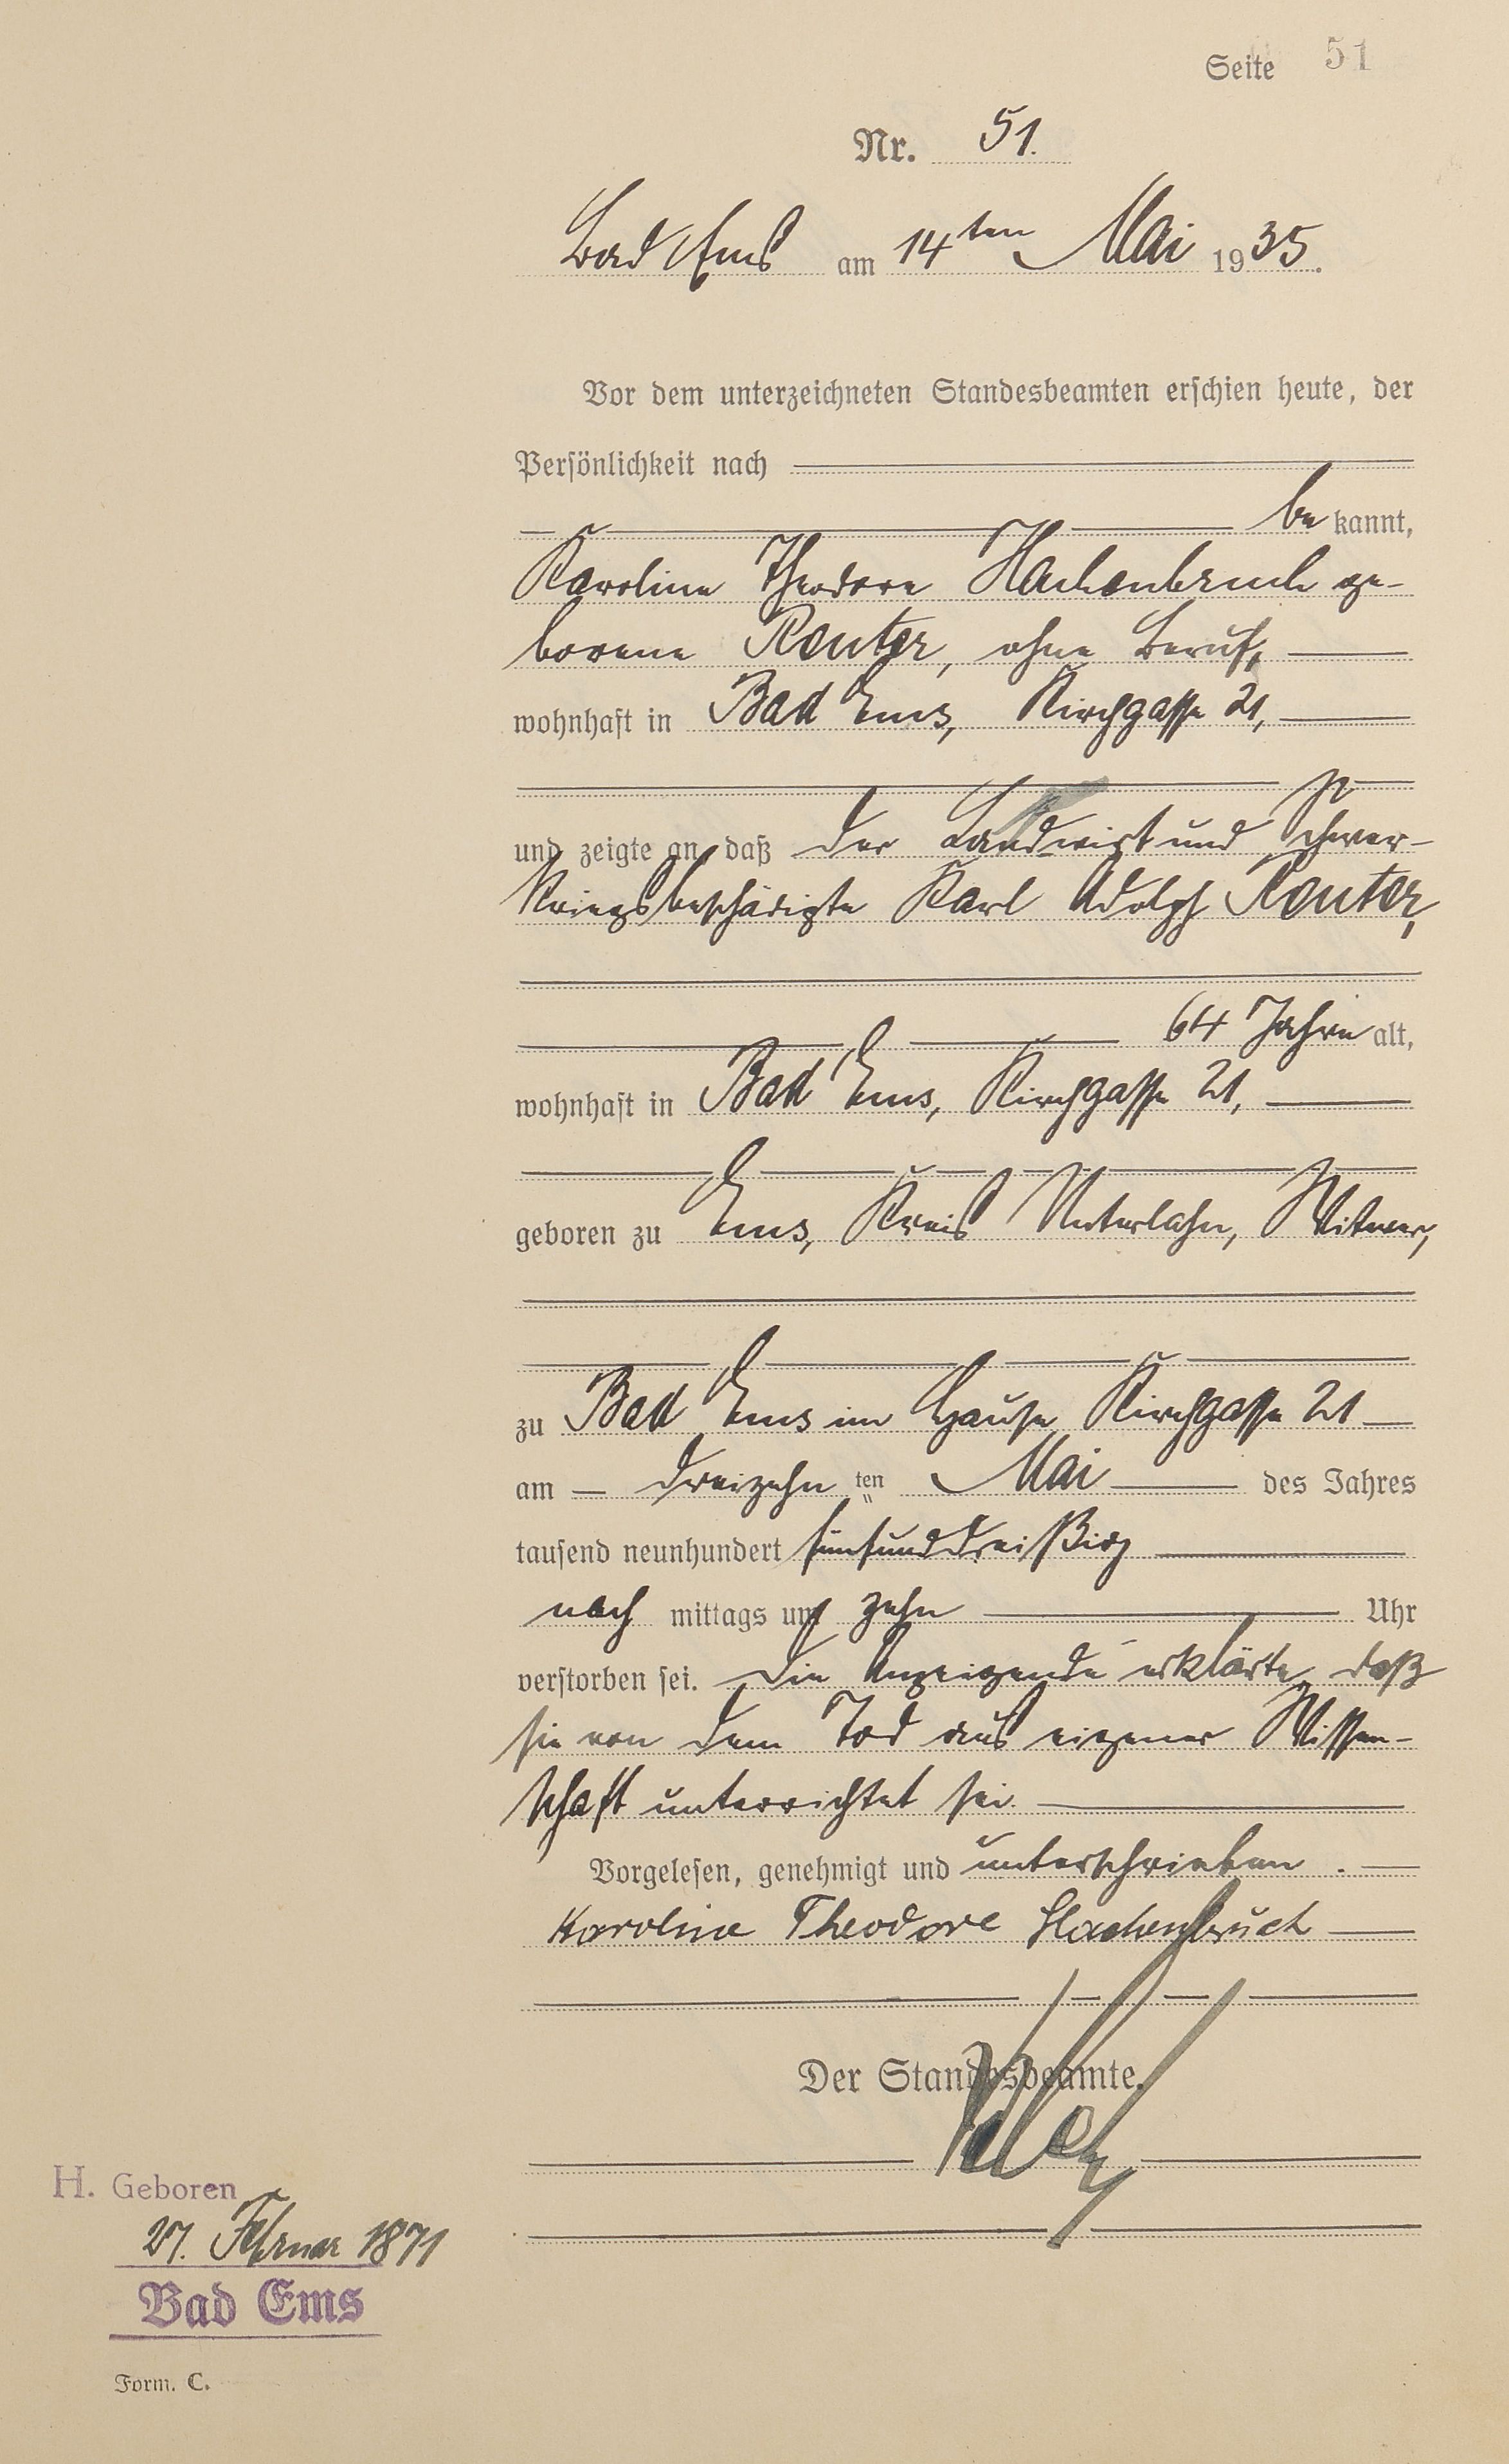 Seite 51
Nr. 51.
Bad Ems am 14ten Mai 1935.
Vor dem unterzeichneten Standesbeamten erschien heute, der
Persönlichkeit nach
be kannt,
Karoline Theodore Hachenbruch ge-
borene Reuter, ohne Beruf,
wohnhaft in Bad Ems, Kirchgasse 21,
und zeigte an, daß der Landwirt und Schwer-
kriegsbeschädigte Karl Adolph Reuter,
64 Jahre alt,
wohnhaft in Bad Ems, Kirchgasse 21,
geboren zu Ems, Kreis Unterlahn, Witwer,
zu Bad Ems im Hause Kirchgasse 21
am dreizehn ten Mai des Jahres
tausend neunhundert fünfunddreißig
nach mittags um zehn Uhr
verstorben sei. Die Anzeigende erklärte, daß
sie von dem Tod aus eigener Wissen-
schaft unterrichtet sei.
Vorgelesen, genehmigt und unterschrieben.
Karoline Theodore Hachenbruch
Der Standesbeamte.
H. Geboren
27. Februar 1871
Bad Ems
Form. C.